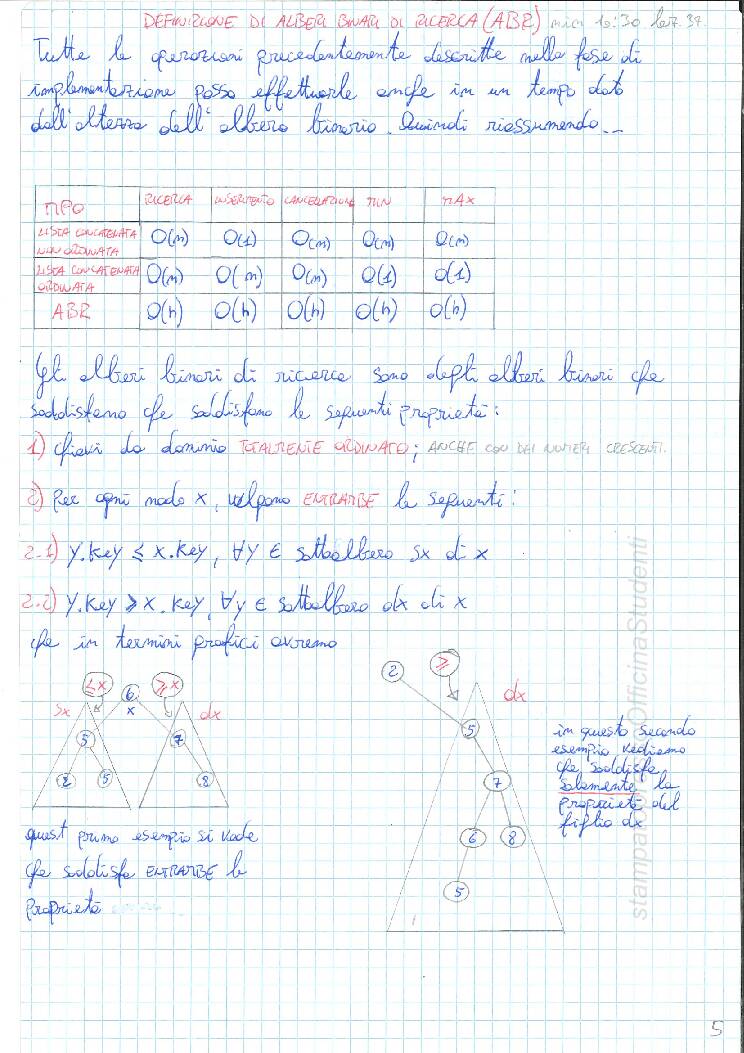 DEFINIZIONE DI ALBERI BINARI DI RICERCA (ABR) min 10:30 lez. 37.
Tutte le operazioni precedentemente descritte nella fase di
implementazione posso effettuarle anche in un tempo dato
dall'altezza dell'albero binario. Quindi riassumendo...
TIPO RICERCA INSERIMENTO CANCELLAZIONE MIN MAX
LISTA CONCATENATA NON ORDINATA O(n) O(1) O(n) O(n) O(n)
LISTA CONCATENATA ORDINATA O(n) O(n) O(n) O(1) O(1)
ABR O(h) O(h) O(h) O(h) O(h)
Gli alberi binari di ricerca sono degli alberi binari che
soddisfano che soddisfano le seguenti proprietà:
1) Chiavi da dominio TOTALMENTE ORDINATO; ANCHE CON DEI NUMERI CRESCENTI.
2) Per ogni nodo x, valgono ENTRAMBE le seguenti:
2.1) y.key ≤ x.key, ∀y ∈ sottoalbero sx di x
2.2) y.key ≥ x.key, ∀y ∈ sottoalbero dx di x
che in termini grafici avremo
≤x 6 ≥x
sx x dx
5 7
2 5 8
quest primo esempio si vede
che soddisfa ENTRAMBE le
proprietà
2 ≥
dx
5
7
6 8
5
in questo secondo
esempio vediamo
che soddisfa
solamente la
proprietà del
figlio dx
5